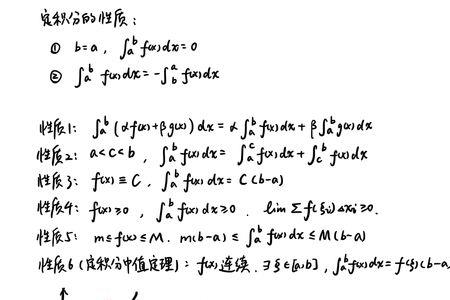 定积分的性质：
① b=a， ∫_a^b f(x)dx=0
② ∫_a^b f(x)dx=-∫_b^a f(x)dx
性质1： ∫_a^b (αf(x)+βg(x)) dx = α∫_a^b f(x)dx + β∫_a^b g(x)dx
性质2： a<c<b， ∫_a^b f(x)dx= ∫_a^c f(x)dx+∫_c^b f(x)dx
性质3： f(x)≡C，∫_a^b f(x)dx= C(b-a)
性质4： f(x)≥0， ∫_a^b f(x)dx≥0. lim Σf(ξi)Δxi≥0.
性质5： m≤f(x)≤M. m(b-a) ≤ ∫_a^b f(x)dx ≤M(b-a)
性质6 (定积分中值定理)： f(x)连续. ∃ξ∈[a,b]，∫_a^b f(x)dx=f(ξ)(b-a